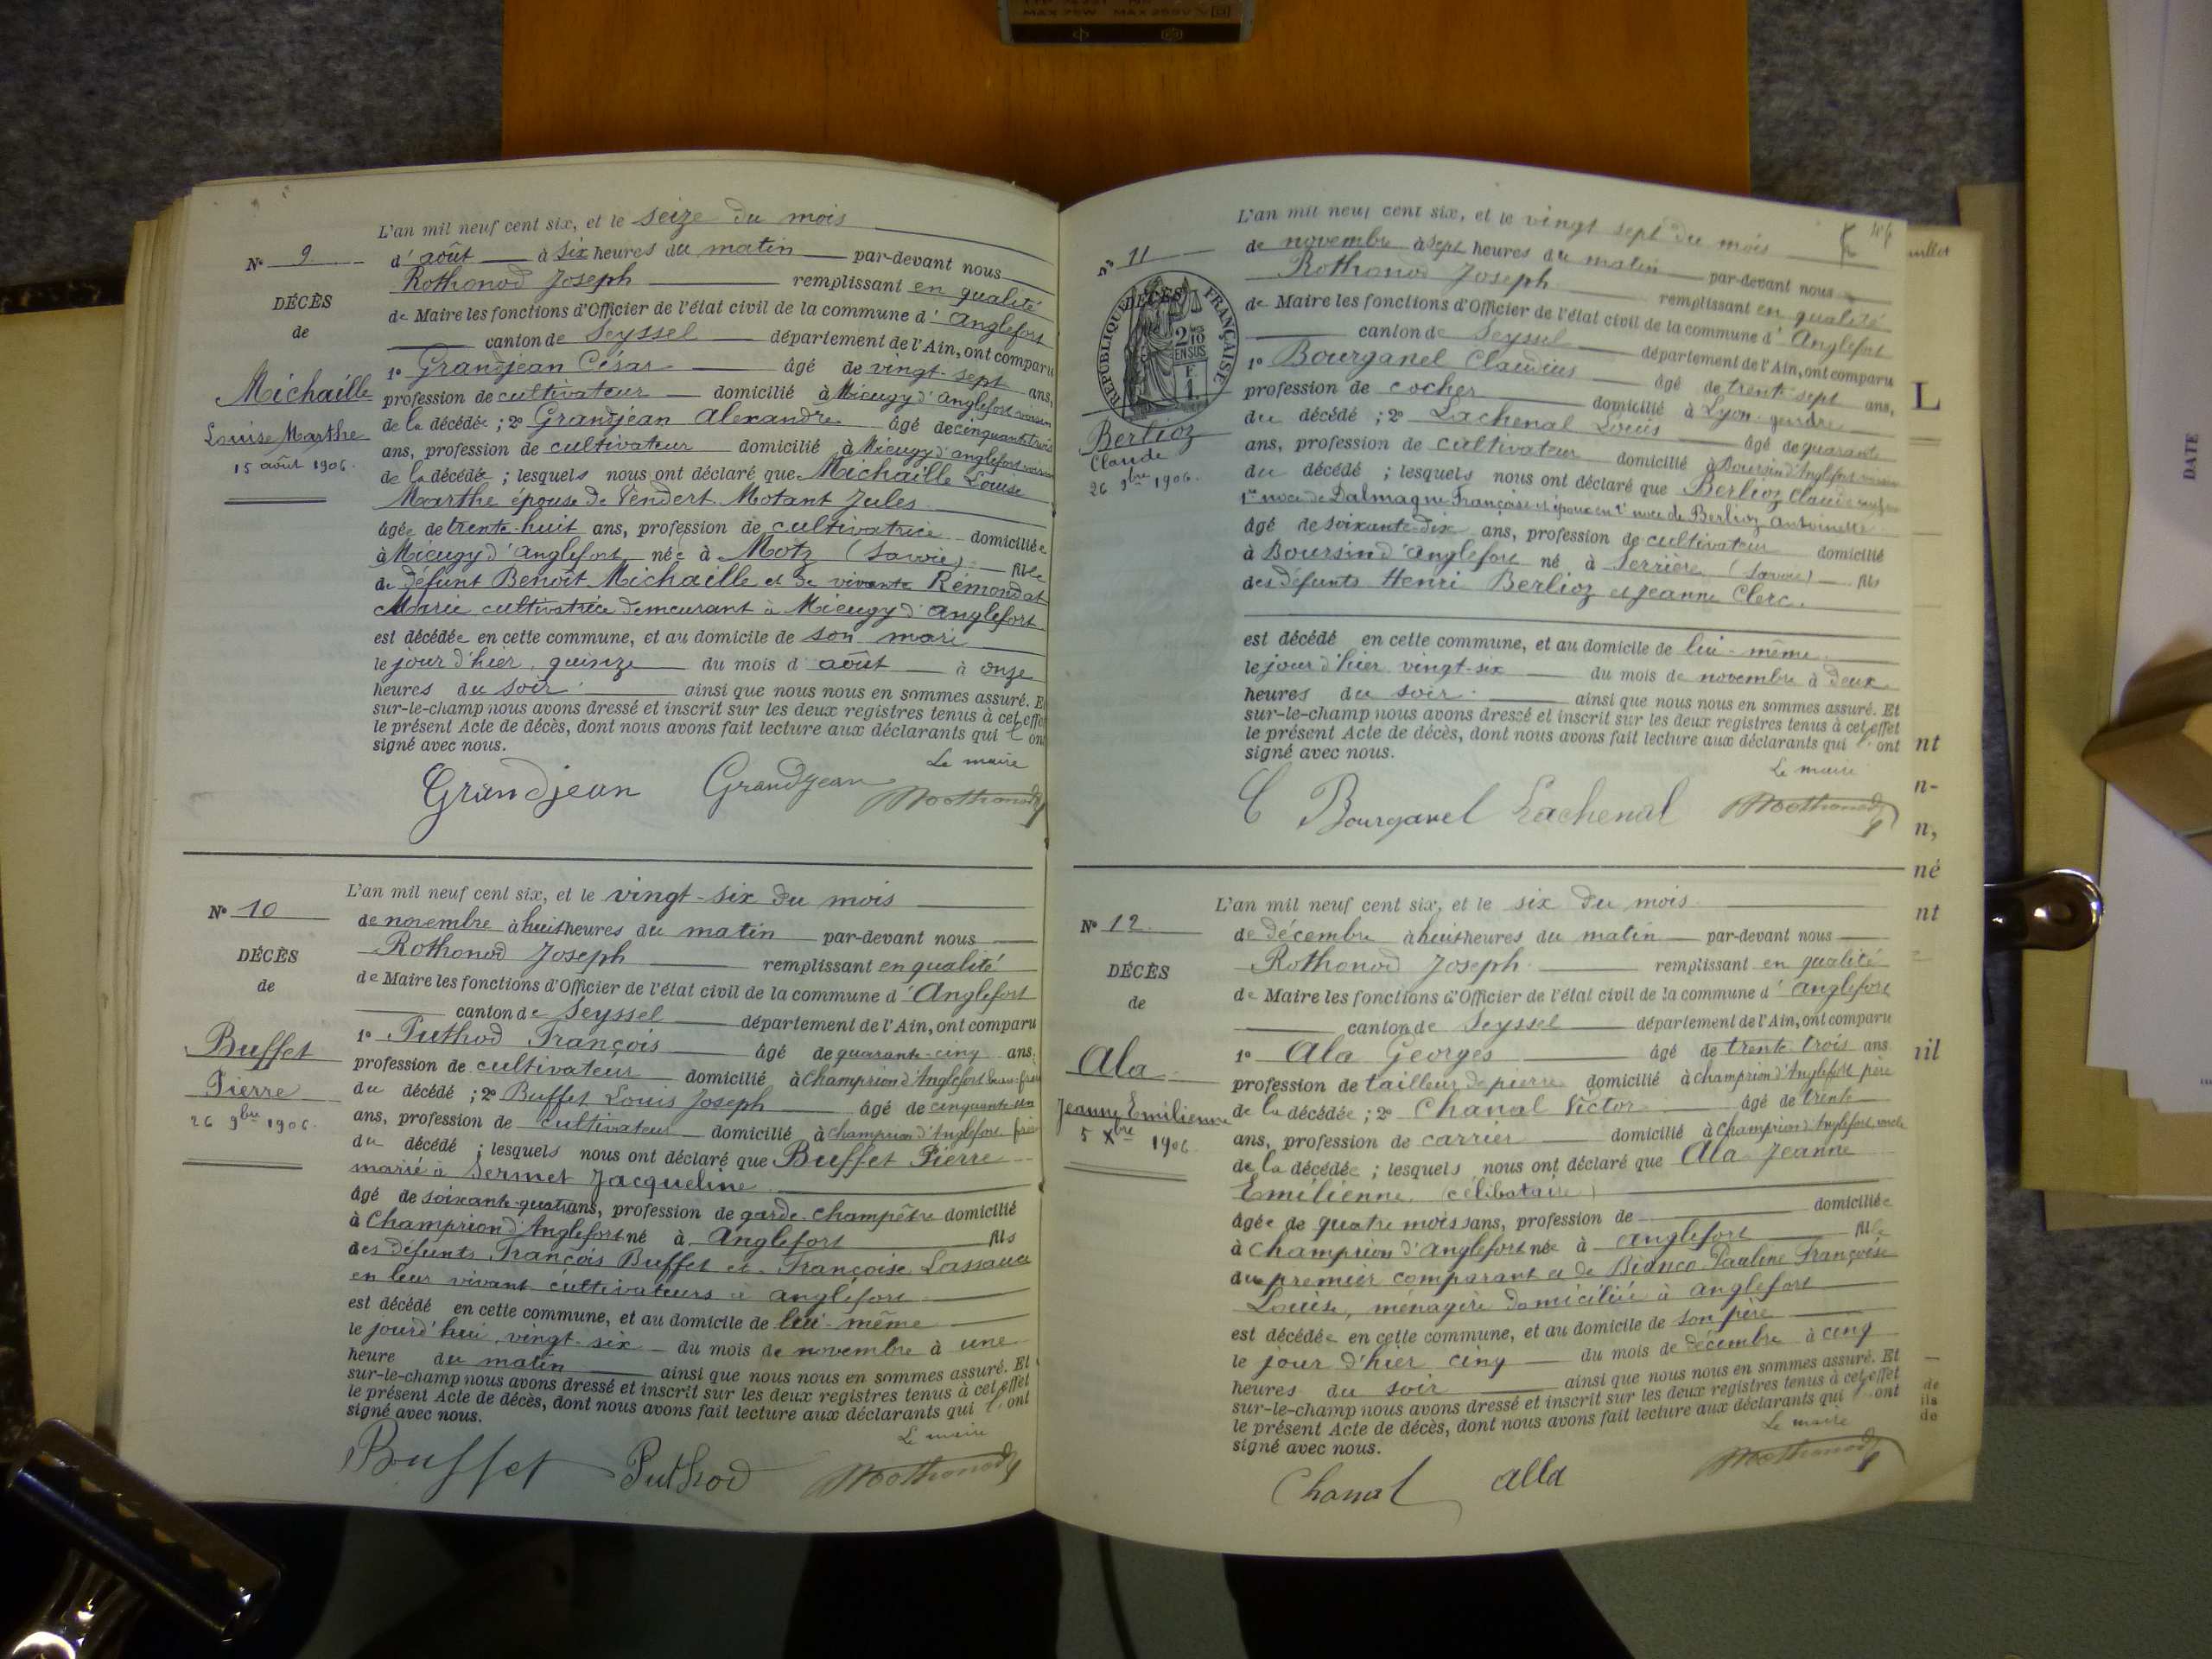 MAX 75W MAX 250V
L'an mil neuf cent six, et le seize du mois
N° 9
d'août à six heures du matin par-devant nous
Rothonod Joseph remplissant en qualité
DÉCÈS
de Maire les fonctions d'Officier de l'état civil de la commune d'Anglefort
de
canton de Seyssel département de l'Ain, ont comparu
1° Grandjean César âgé de vingt-sept ans,
Michaille
profession de cultivateur domicilié à Mieugy d'Anglefort voisin
de la décédée ; 2° Grandjean Alexandre âgé de cinquante trois
Louise Marthe
ans, profession de cultivateur domicilié à Mieugy d'Anglefort voisin
15 août 1906.
de la décédée ; lesquels nous ont déclaré que Michaille Louise
Marthe épouse de Vendert Motant Jules
âgée de trente-huit ans, profession de cultivatrice domiciliée
à Mieugy d'Anglefort née à Motz (Savoie) fille
de défunt Benoît Michaille et de vivante Rémond at
Marie cultivatrice demeurant à Mieugy d'Anglefort
est décédée en cette commune, et au domicile de son mari
le jour d'hier, quinze du mois d'août à onze
heures du soir ainsi que nous nous en sommes assuré. Et
sur-le-champ nous avons dressé et inscrit sur les deux registres tenus à cet effet
le présent Acte de décès, dont nous avons fait lecture aux déclarants qui l'ont
signé avec nous.
Le maire
Grandjean Grandjean Rothonod
L'an mil neuf cent six, et le vingt-six du mois
N° 10
de novembre à huit heures du matin par-devant nous
Rothonod Joseph remplissant en qualité
DÉCÈS
de Maire les fonctions d'Officier de l'état civil de la commune d'Anglefort
de
canton de Seyssel département de l'Ain, ont comparu
1° Puthod François âgé de quarante-cinq ans.
Buffet
profession de cultivateur domicilié à Champrion d'Anglefort beau-frère
Pierre
du décédé ; 2° Buffet Louis Joseph âgé de cinquante-un
26 9bre 1906.
ans, profession de cultivateur domicilié à Champrion d'Anglefort frère
du décédé ; lesquels nous ont déclaré que Buffet Pierre
marié à Sermet Jacqueline
âgé de soixante-quatre ans, profession de garde-champêtre domicilié
à Champrion d'Anglefort né à Anglefort fils
des défunts François Buffet et Françoise
en leur vivant cultivateurs à Anglefort
est décédé en cette commune, et au domicile de lui-même
le jourd'hui vingt-six du mois de novembre à une
heure du matin ainsi que nous nous en sommes assuré. Et
sur-le-champ nous avons dressé et inscrit sur les deux registres tenus à cet effet
le présent Acte de décès, dont nous avons fait lecture aux déclarants qui l'ont
signé avec nous.
Le maire
Buffet Puthod Rothonod
L'an mil neuf cent six, et le vingt sept du mois
N° 11
de novembre à sept heures du matin par-devant nous
Rothonod Joseph remplissant en qualité
DÉCÈS
RÉPUBLIQUE FRANÇAISE
2/10 EN SUS
F. 1.
de Maire les fonctions d'Officier de l'état civil de la commune d'Anglefort
canton de Seyssel département de l'Ain, ont comparu
1° Bourganel Claudius âgé de trente sept ans,
profession de cocher domicilié à Lyon gendre
du décédé ; 2° Lachenal Louis âgé de quarante
Berlioz
Claude
26 9bre 1906.
ans, profession de cultivateur domicilié à Boursin d'Anglefort voisin
du décédé ; lesquels nous ont déclaré que Berlioz Claude veuf en
1re noce de Dalmagne Françoise et époux en 2e noce de Berlioz Antoinette
âgé de soixante-dix ans, profession de cultivateur domicilié
à Boursin d'Anglefort né à Serrière (Savoie) fils
des défunts Henri Berlioz et Jeanne Clerc.
est décédé en cette commune, et au domicile de lui-même
le jour d'hier vingt-six du mois de novembre à deux
heures du soir ainsi que nous nous en sommes assuré. Et
sur-le-champ nous avons dressé et inscrit sur les deux registres tenus à cet effet
le présent Acte de décès, dont nous avons fait lecture aux déclarants qui l'ont
signé avec nous.
Le maire
C Bourganel Lachenal Rothonod
L'an mil neuf cent six, et le six du mois
N° 12
de décembre à huit heures du matin par-devant nous
Rothonod Joseph remplissant en qualité
DÉCÈS
de Maire les fonctions d'Officier de l'état civil de la commune d'Anglefort
de
canton de Seyssel département de l'Ain, ont comparu
1° Ala Georges âgé de trente trois ans
Ala
profession de tailleur de pierre domicilié à Champrion d'Anglefort père
Jeanne Emilienne
de la décédée ; 2° Chanal Victor âgé de trente
5 Xbre 1906
ans, profession de carrier domicilié à Champrion d'Anglefort oncle
de la décédée ; lesquels nous ont déclaré que Ala Jeanne
Emilienne (célibataire)
âgée de quatre mois ans, profession de domiciliée
à Champrion d'Anglefort née à Anglefort fille
du premier comparant et de Bianco Pauline Françoise
Louise, ménagère domiciliée à Anglefort
est décédée en cette commune, et au domicile de son père
le jour d'hier cinq du mois de décembre à cinq
heures du soir ainsi que nous nous en sommes assuré. Et
sur-le-champ nous avons dressé et inscrit sur les deux registres tenus à cet effet
le présent Acte de décès, dont nous avons fait lecture aux déclarants qui l'ont
signé avec nous.
Le maire
Chanal alla Rothonod
L
nt
n-
n,
né
nt
il
de
ils
de
DATE